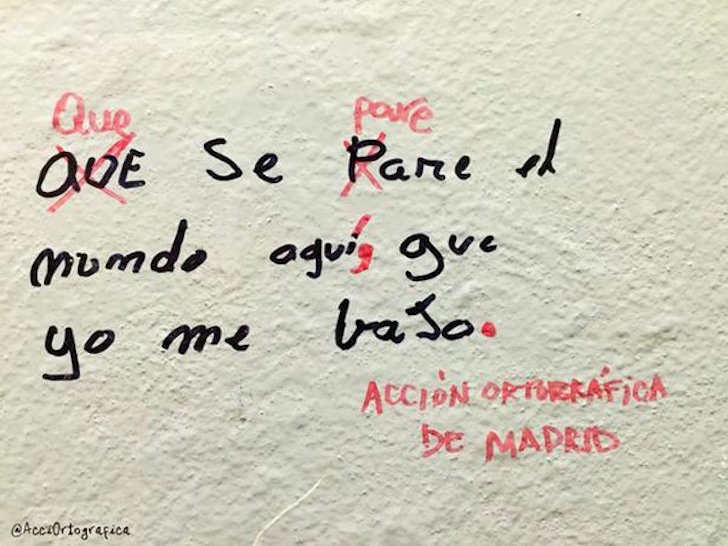 Que pare
QUE Se Pare el
mundo aquí, que
yo me baJo.
ACCIÓN ORTOGRÁFICA
DE MADRID
@AcciOrtografica